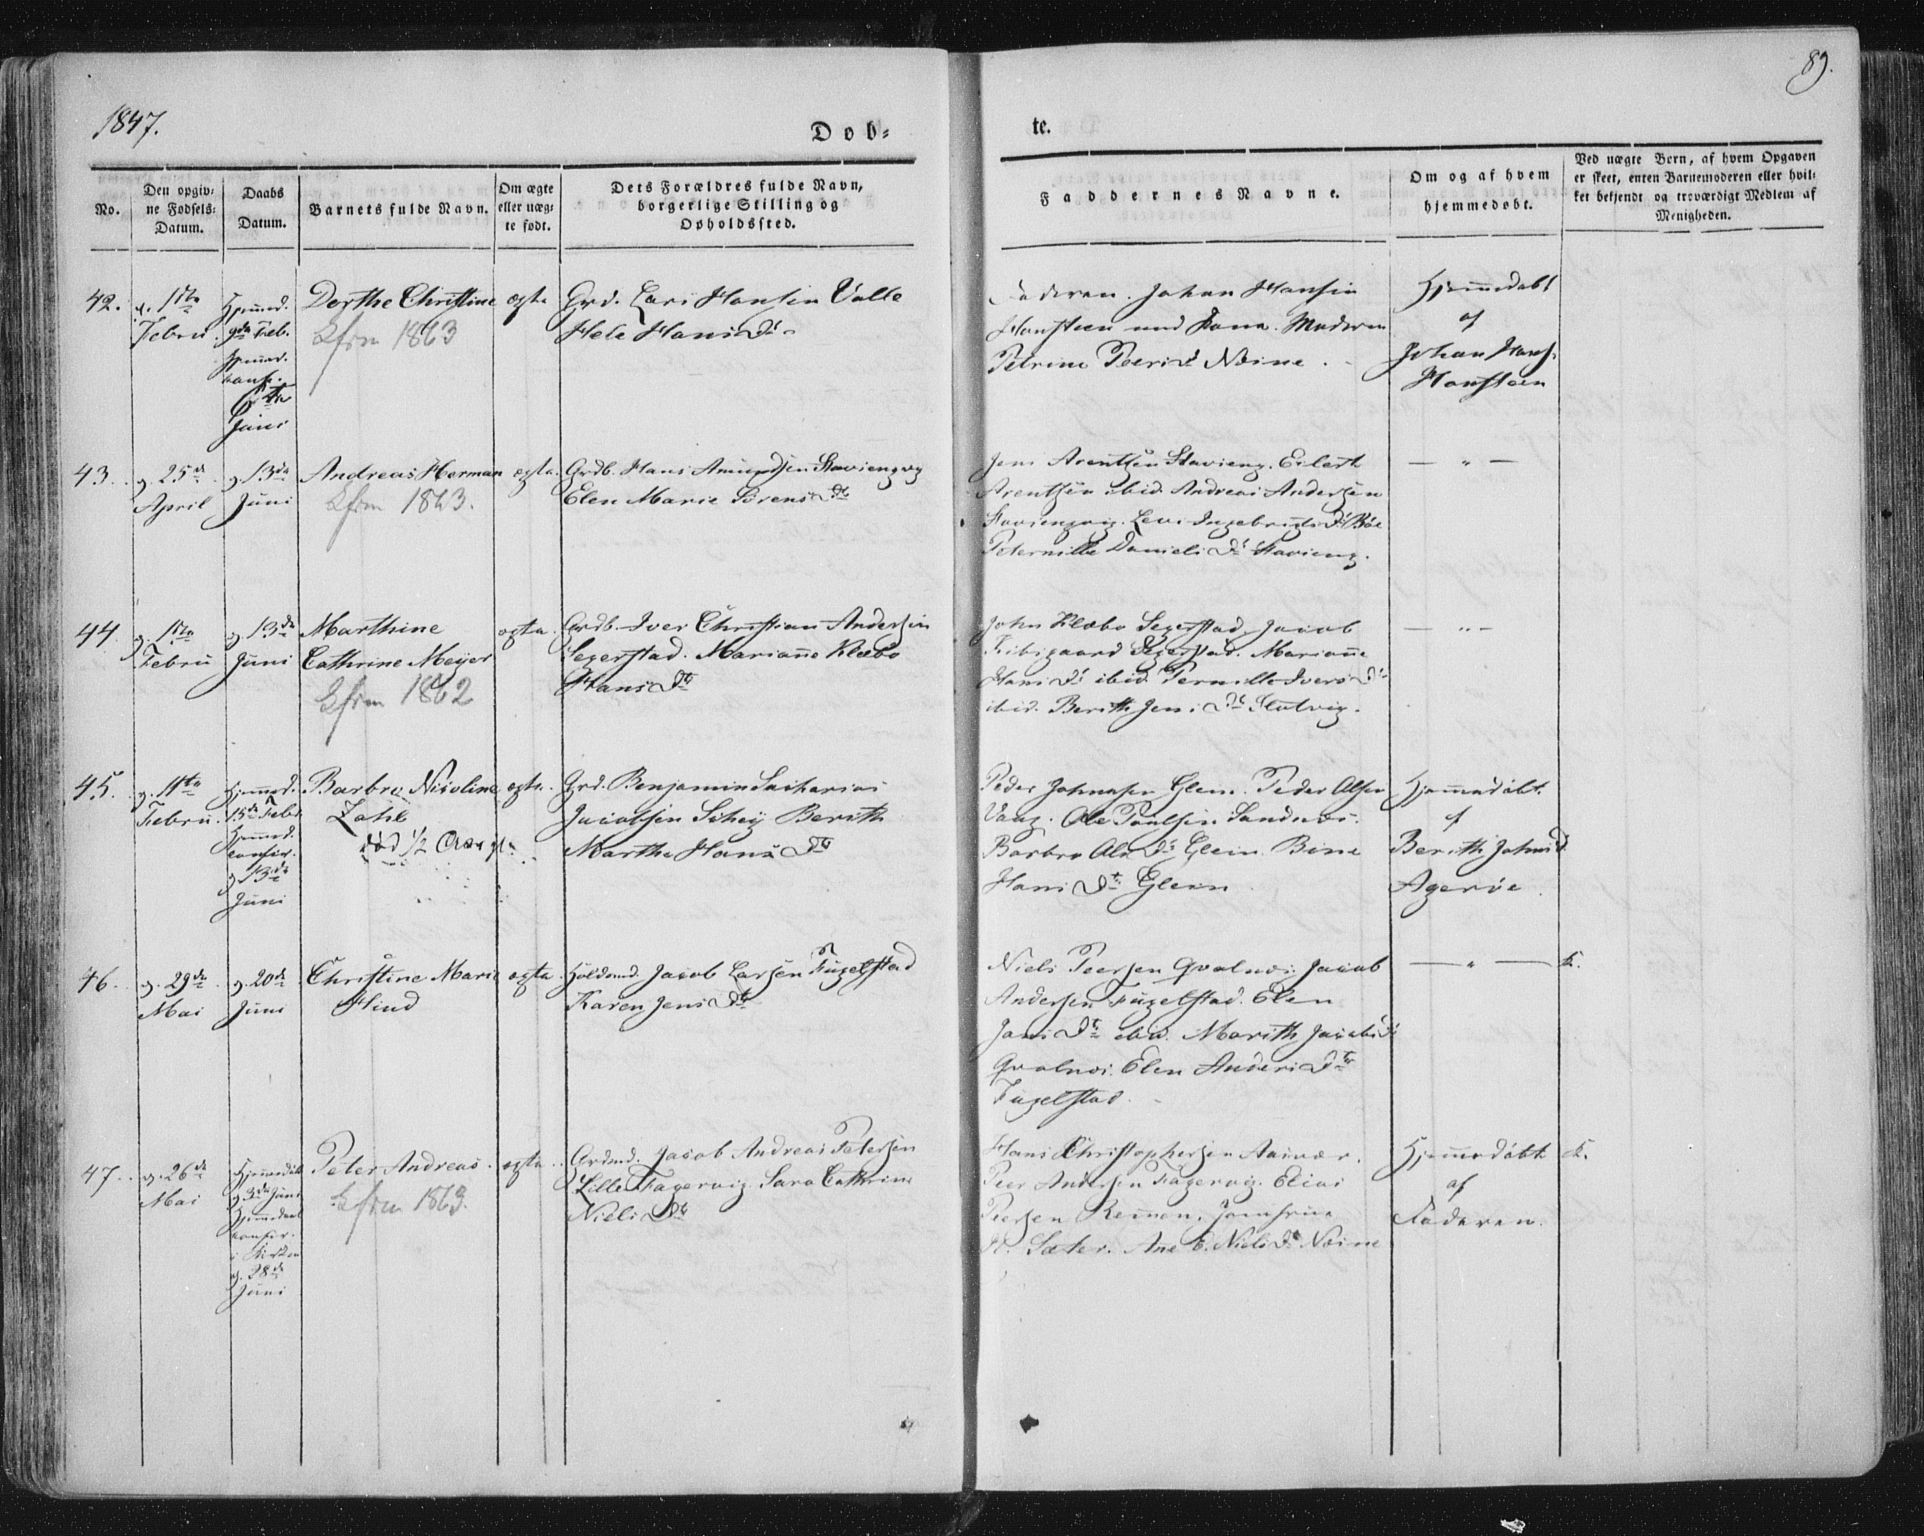 1847.
89.
Døb-
te.
No.
Den opgiv-
ne Fødsels-
Datum.
Daabs
Datum.
Barnets fulde Navn.
Om ægte
eller uæg-
te født.
Dets Forældres fulde Navn,
borgerlige Stilling og
Opholdssted.
Faddernes Navne.
Om og af hvem
hjemmedøbt.
Ved uægte Børn, af hvem Opgaven
er skeet, enten Barnemoderen eller hvil-
ket bekjendt og troværdigt Medlem af
Menigheden.
42.
Febru
Juni
Dorthe Christine
1863
ægte
Grd. Lars Hansen Valle
Hele Hans Dt
Faderen. Johan Hansen
Hansteen med Kone. Moderen
Petrine Peers Dt Næine.
Hjemmedøbt
af
Johan Hans.
Hansteen
43.
g. 25de
April
g. 13de
Juni
Andreas Herman
1863.
ægte.
Grdb. Hans Amundsen Stavsengvig
Elen Marie Sørens Dtr
Jens Arentsen Stavseng. Eilert
Arentsen ibid. Andreas Andersen
Stavsengvig. Ingebrigts Dt Bøe
Petermille Daniels Dt Stavseng.
— " —
44.
Febru
g. 13de
Juni
Marthine
Cathrine Meyer
1862
ægte.
Grdb. Iver Christian Andersen
Segerstad. Marianne Klæbo
Hans Dtr
John Klæbo Segerstad. Jacob
Segerstad. Marianne
Hans Dt ibid. Pernille Ivers Dt
ibid. Berith Jens Dt Slotvig.
— " —
45.
g. 11te
Febru
Hjemmed.
15de Febr
Hjemmed.
confir.
g. 13de
Juni
Barbro Nicoline
Zahl
død 1/2 Aar gl.
ægte.
Grd. Benjamin Sacharias
Jacobsen Berith
Martha Hans Dtr
Peder Johnsen Glein. Peder Olsen
Vaag. Ole Poulsen Sandnes.
Barbro Ols Dt Glein. Bine
Hans Dtr Glein
Hjemmedøbt.
af
Berith Johns Dt
Agerøe.
46.
g. 29de
Mai
g. 20de
Juni
Christine Marie
Hind
ægte.
Jacob Larsen Fugelstad
Karen Jens Dtr
Niels Peersen Qvalnes. Jacob
Andersen Fugelstad. Elen
Jans Dtr ibid. Marith Jacobs Dt
Qvalnes. Elen Anders Dtr
Fugelstad.
— " —
47.
g. 26de
Mai
Hjemmedøbt
g. 3de Juni
Hjemmedaab
confir.
i Kirken
g. 28de
Juni
Peter Andreas.
1863.
ægte
Grdmd. Jacob Andreas Petersen
Lille Fagervig. Sara Cathrine
Niels Dtr
Hans Christophersen Aasvær.
Peer Andersen Fagervig. Elias
Peersen Remmen. Jomfrue
Sæter. Ane E. Niels Dtr Næine
Hjemmedøbt
af
Faderen.